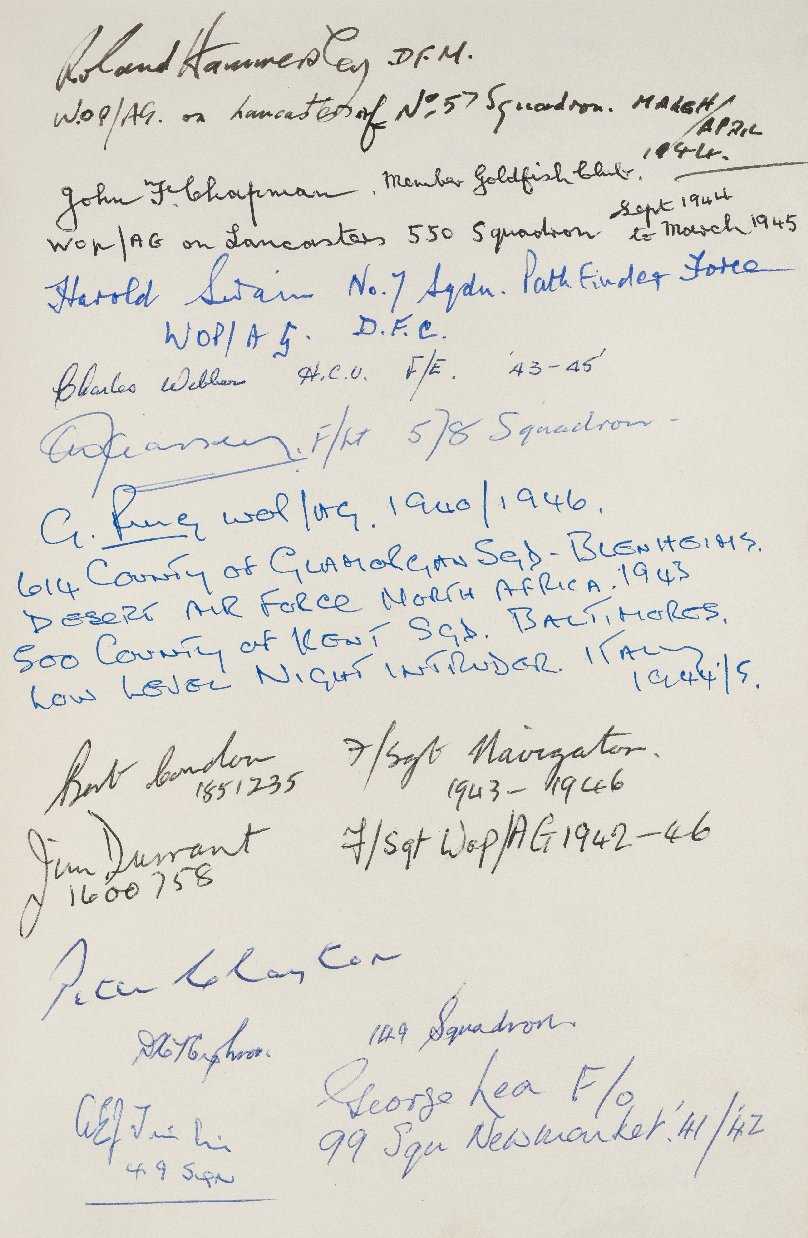 Roland Hammersley D.F.M.
W.OP/AG. on Lancasters of No. 57 Squadron. MARCH/
APRIL
1944.
John F. Chapman, Member Goldfish Club.
WOP/AG on Lancasters 550 Squadron Sept 1944
to March 1945
Harold Swain No. 7 Sqdn. Path Finder Force
WOP/AG. D.F.C.
Charles Webber H.C.U. F/E. '43-45'
F/Lt 578 Squadron -
G. WOP/AG. 1940/1946.
614 COUNTY OF GLAMORGAN SQD - BLENHEIMS.
DESERT AIR FORCE NORTH AFRICA. 1943
500 COUNTY OF KENT SQD. BALTIMORES.
LOW LEVEL NIGHT INTRUDER. ITALY
1944/5.
Bert London F/Sgt Navigator.
1851235 1943 - 1946
Jim Durrant F/Sgt Wop/AG 1942-46
1600758
Peter Clayton
149 Squadron.
George Lea F/O
99 Sqn Newmarket '41/'42
49 SQN